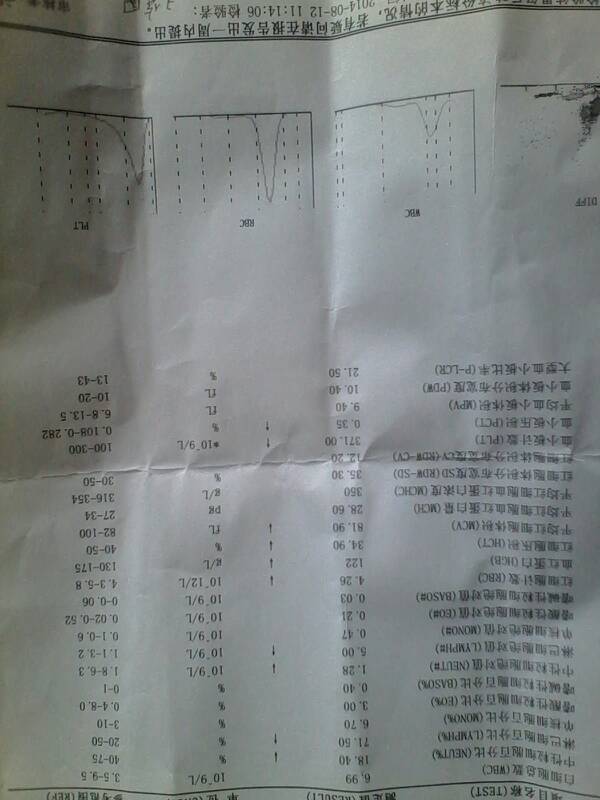 项目名称(TEST) 测定值(RESULT) 单 位 参考范围(REF
白细胞总数(WBC) 6.99 10^9/L 3.5-9.5
中性粒细胞百分比(NEUT% 18.40 ↓ % 40-75
淋巴细胞百分比(LYMPH% 71.50 ↑ % 20-50
单核细胞百分比(MONO% 6.70 % 3-10
嗜酸性粒细胞百分比(EO% 3.00 % 0.4-8.0
嗜碱性粒细胞百分比(BASO% 0.40 % 0-1
中性粒细胞绝对值(NEUT# 1.28 ↓ 10^9/L 1.8-6.3
淋巴细胞绝对值(LYMPH# 5.00 ↑ 10^9/L 1.1-3.2
单核细胞绝对值(MONO# 0.47 10^9/L 0.1-0.6
嗜酸性粒细胞绝对值(EO# 0.21 10^9/L 0.02-0.52
嗜碱性粒细胞绝对值(BASO# 0.03 10^9/L 0-0.06
红细胞计数(RBC) 4.26 ↓ 10^12/L 4.3-5.8
血红蛋白(HGB) 122 ↓ g/L 130-175
红细胞压积(HCT) 34.90 ↓ % 40-50
平均红细胞体积(MCV) 81.90 ↓ fL 82-100
平均红细胞血红蛋白量(MCH) 28.60 pg 27-34
平均红细胞血红蛋白浓度(MCHC) 350 g/L 316-354
红细胞体积分布宽度SD(RDW-SD) 35.30 % 30-50
红细胞体积分布宽度CV(RDW-CV 12.20
血小板计数(PLT) 371.00 ↑ *10^9/L 100-300
血小板压积(PCT) 0.35 ↑ 0.108-0.282
平均血小板体积(MPV) 9.40 fL 6.8-13.5
血小板体积分布宽度(PDW) 10.40 fL 10-20
大型血小板比率(P-LCR) 21.50 % 13-43
DIFF WBC RBC PLT
份标本的情况, 若有疑问请在报告发出一周内提出。
2014-08-12 11:14:06 检验者: